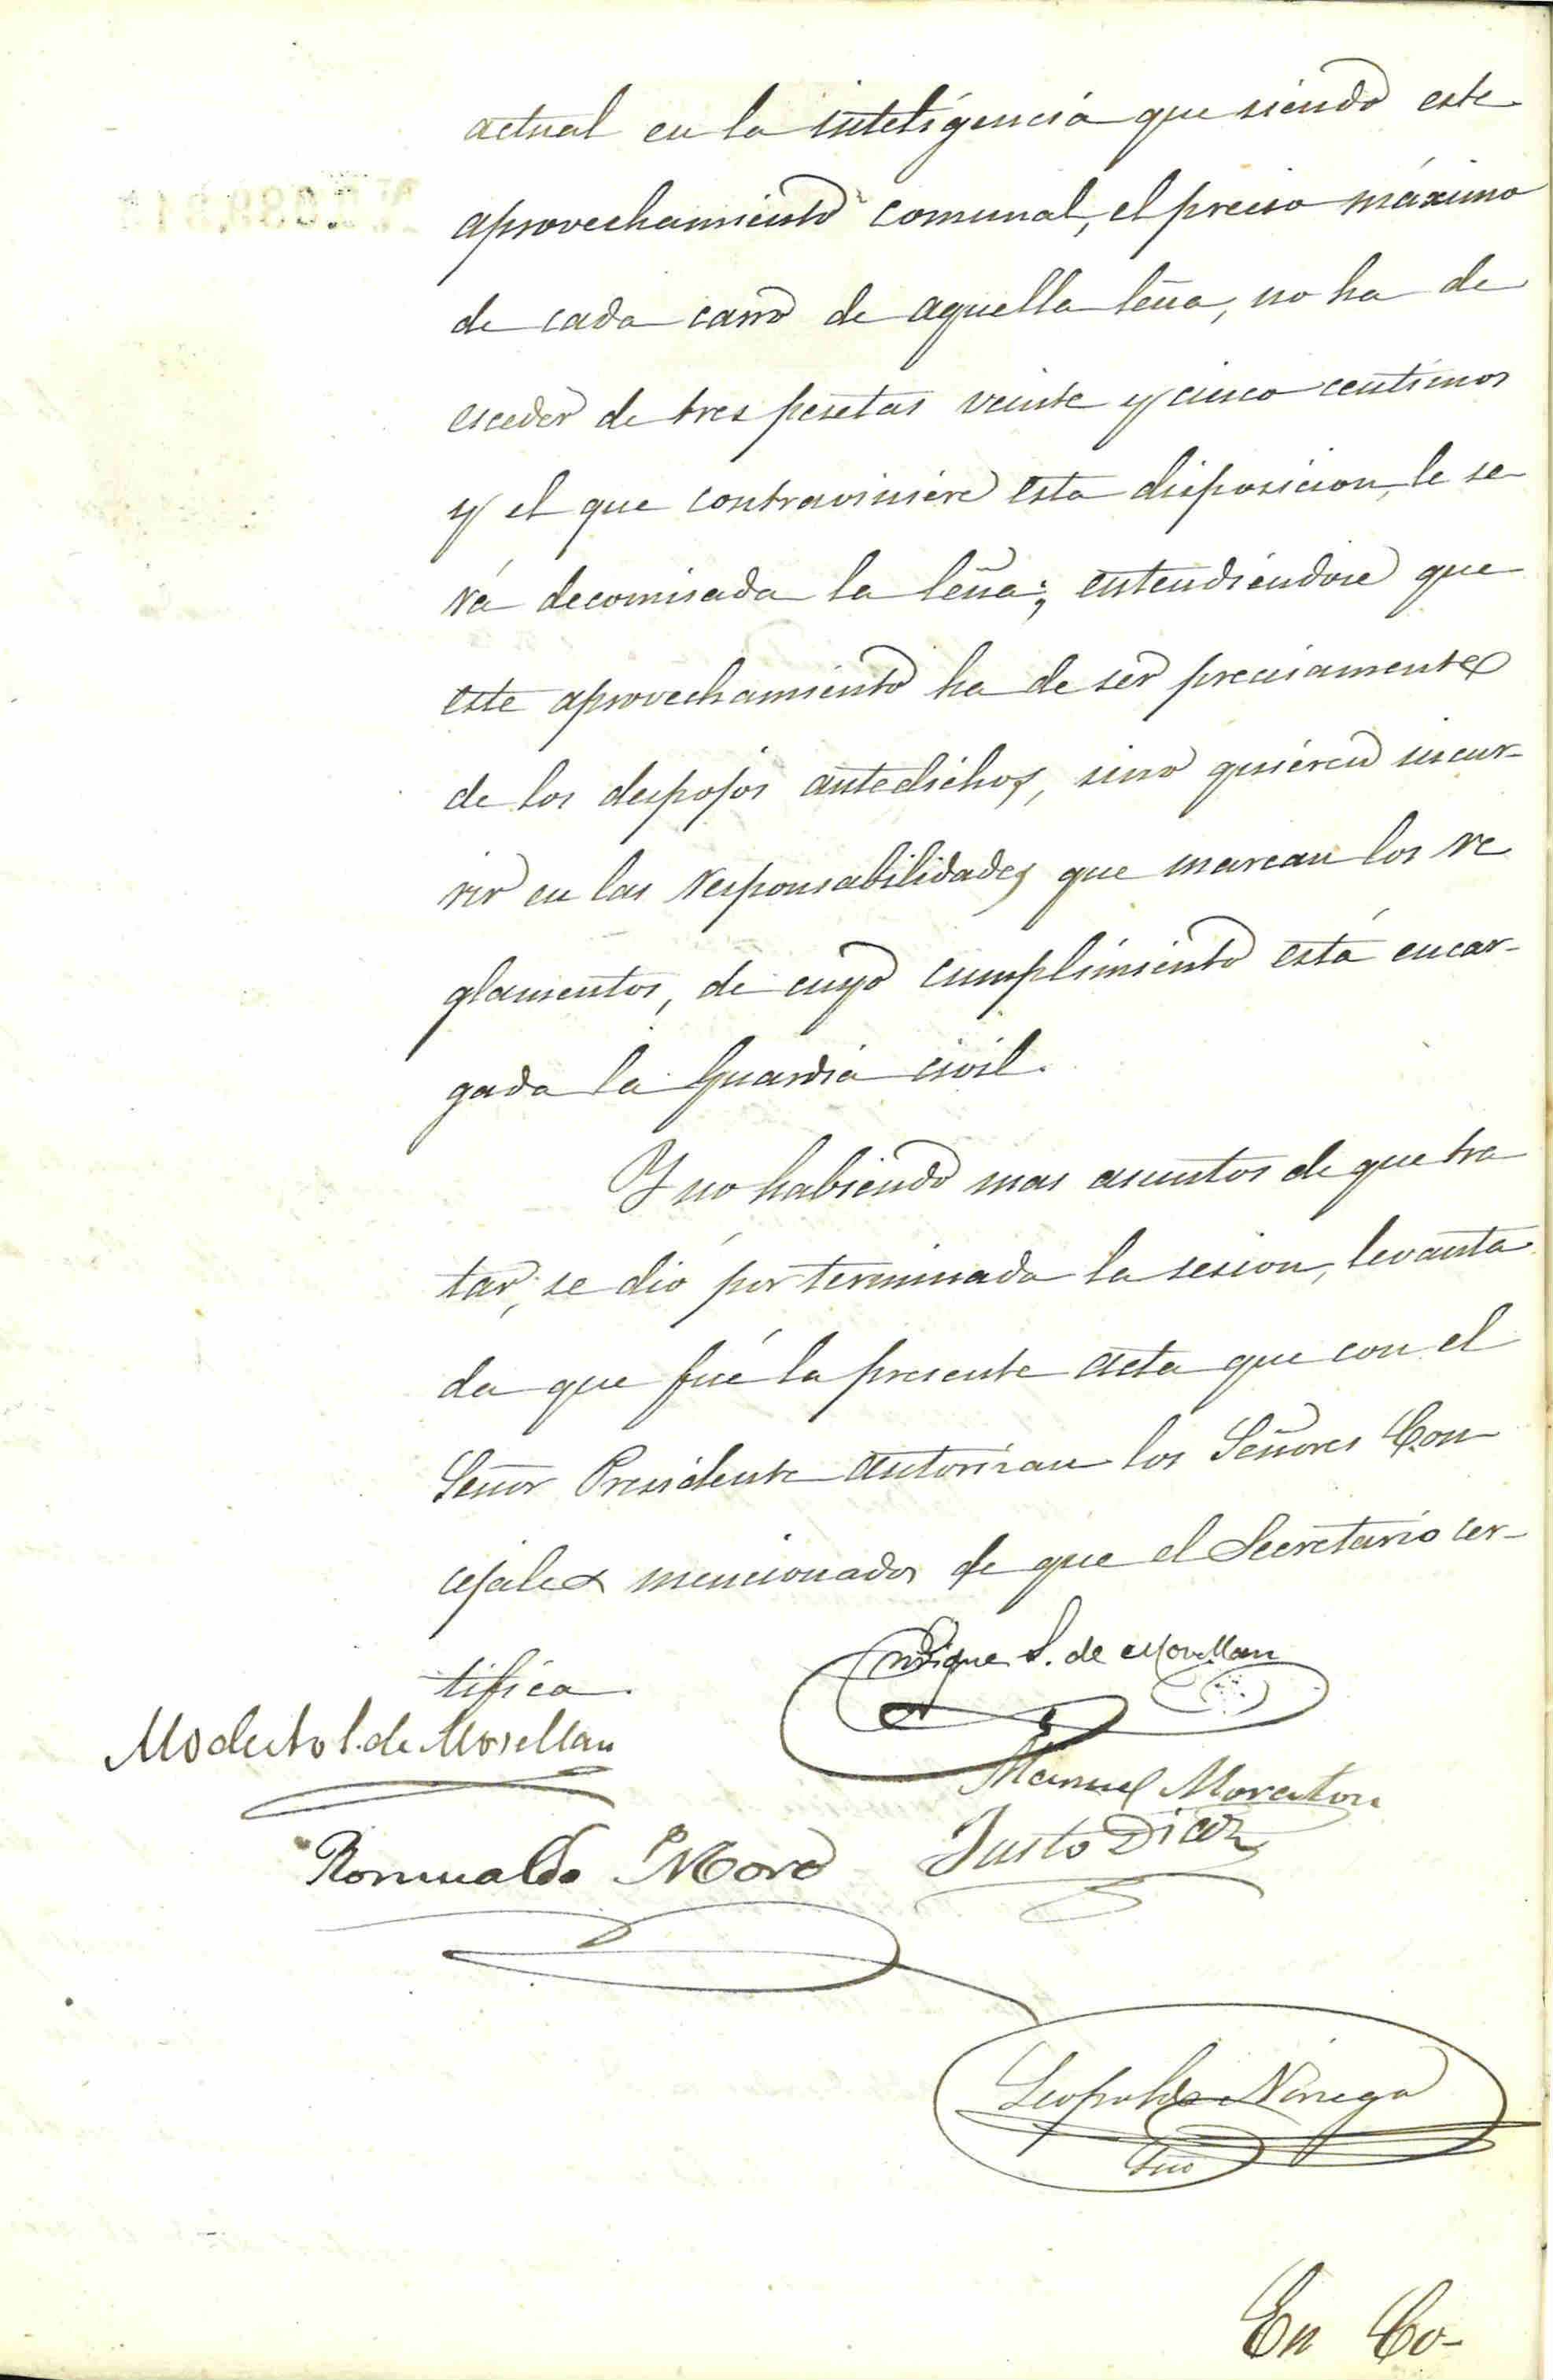 actual en la inteligencia que siendo este
aprovechamiento comunal, el precio máximo
de cada carro de aquella leña, no ha de
esceder de tres pesetas veinte y cinco centimos
y el que contraviniere esta disposicion, le se-
rá decomisada la leña; entendiéndose que
este aprovechamiento ha de ser precisamente
de los despojos antedichos, sino quieren incur-
rir en las responsabilidades que marcan los re
glamentos, de cuyo cumplimiento está encar-
gada la Guardia civil.
Y no habiendo mas asuntos de que tra
tar, se dió por terminada la sesion, levanta
da que fué la presente acta que con el
Señor Presidente autorizan los Señores Con
cejales mencionados de que el Secretario cer-
tifica.
Enrique S. de Movellan
Modesto S. de Movellan
Manuel
Romualdo Moro
Justo Diaz
Leopoldo Noriega
Srio
En Co-